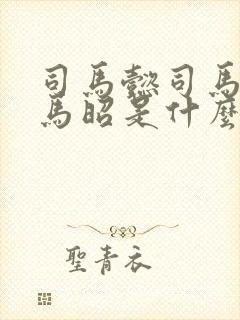 司馬懿司馬
馬昭是什麼
聖青衣